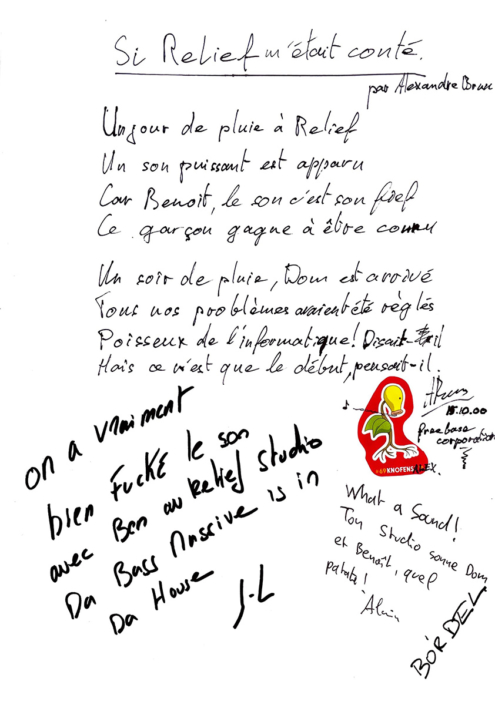 Si Relief m'était conté.
par Alexandre
Un jour de pluie à Relief
Un son puissant est apparu
Car Benoit, le son c'est son fief
Ce garçon gagne à être connu
Un soir de pluie, Dom est arrivé
Tous nos problèmes avaient été réglés
Poisseux de l'informatique! Disait-il
Mais ce n'est que le début, pensait-il.
18.10.00
freebase
corporation
#69 KNOFENS
ALEX.
on a vraiment
bien FucKé le son
avec Ben au Relief Studio
Da Bass Massive is in
Da House
J-L
What a Sound!
Ton Studio sonne Dom
et Benoit, quel
patate!
Alain
BORDEL